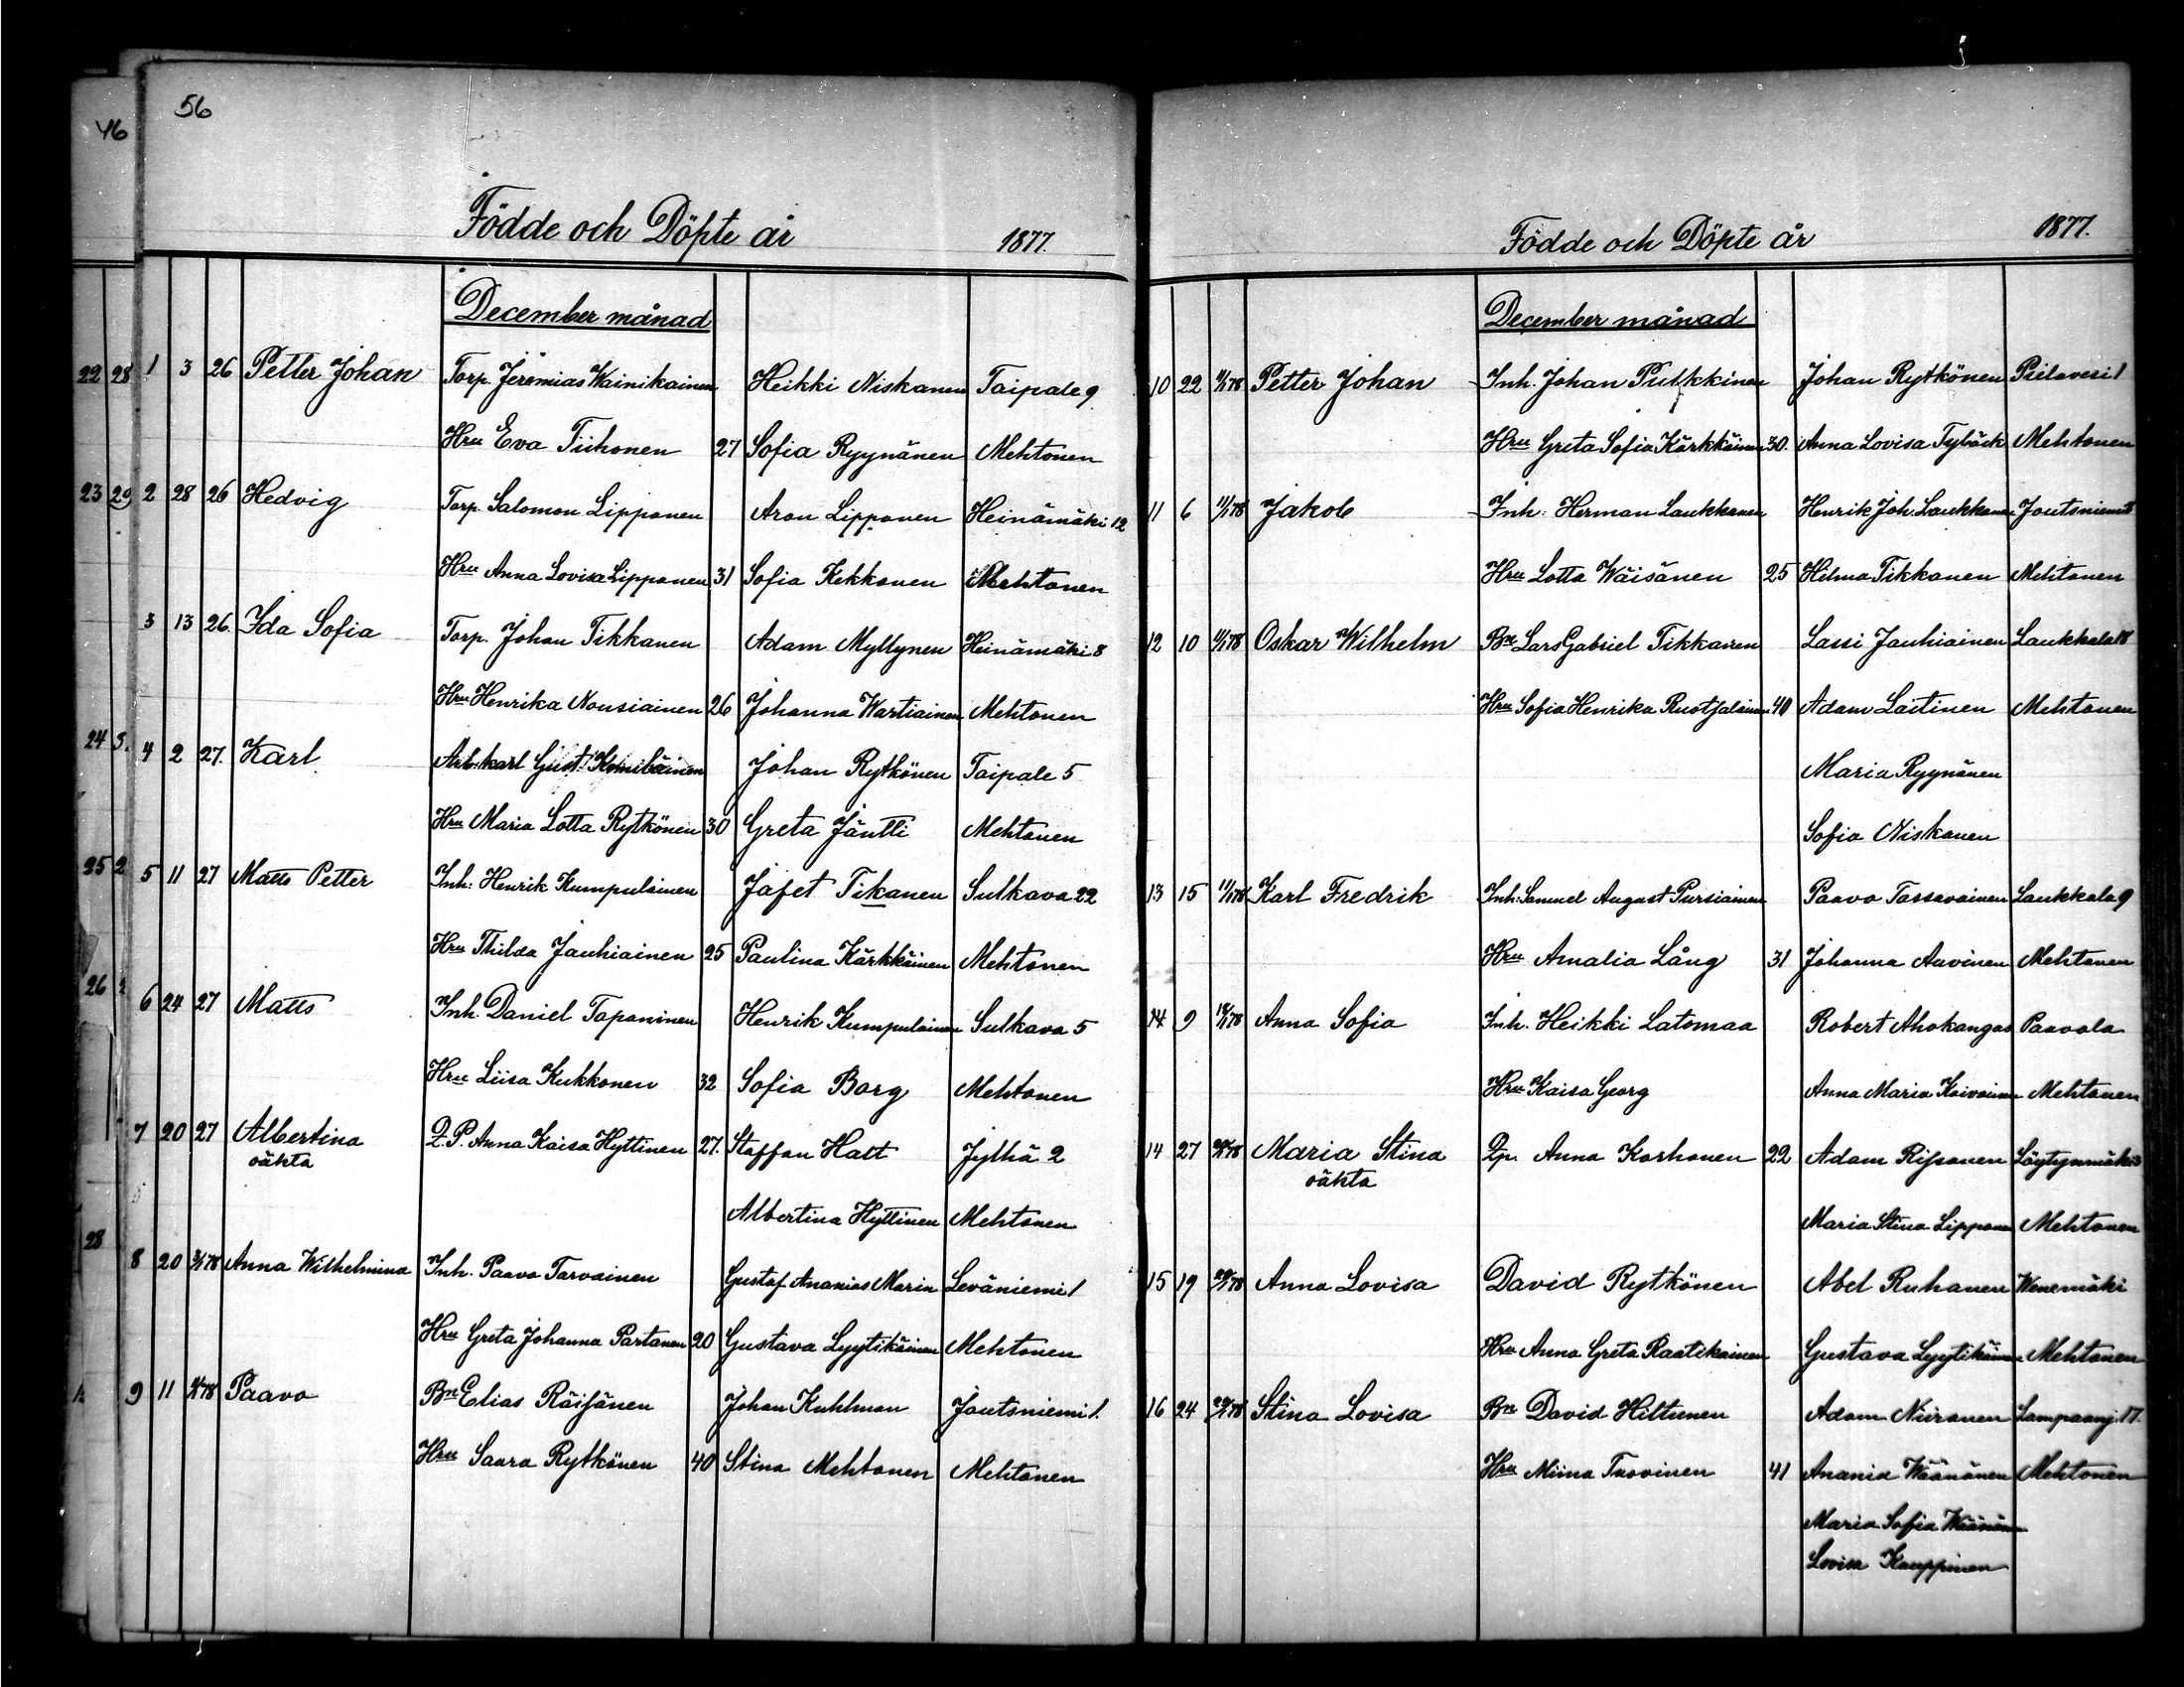 46
56
Födde och Döpte år 1877.
December månad
22 28
1 3 26 Petter Johan Torp. Jeremias Wainikainen Heikki Niskanen Taipale 9
Hru Eva Tiihonen 27 Sofia Ryynänen Mehtonen
23 29
2 28 26 Hedvig Torp. Salomon Lipponen Aron Lipponen Heinämäki 12
Hru Anna Lovisa Lipponen 31 Sofia Kekkonen Mehtonen
3 13 26. Ida Sofia Torp. Johan Tikkanen Adam Myllynen Heinämäki 8
Hru Henrika Nousiainen 26 Johanna Wartiainen Mehtonen
24 3.
4 2 27. Karl Arb.karl Gust. Johan Rytkönen Taipale 5
Hru Maria Lotta Rytkönen 30 Greta Jäntti Mehtonen
25 2
5 11 27 Matts Petter Inh. Henrik Kumpulainen Jafet Tikanen Sulkava 22
Hru Thilda Jauhiainen 25 Paulina Kärkkäinen Mehtonen
26 2
6 24 27 Matts Inh. Daniel Tapaninen Henrik Kumpulainen Sulkava 5
Hru Liisa Kukkonen 32 Sofia Borg Mehtonen
7 20 27 Albertina Q.P. Anna Kaisa Hyttinen 27. Staffan Hatt Jylhä 2
oäkta
Albertina Hyttinen Mehtonen
28
8 20 3/1 78 Anna Wilhelmina Inh. Paavo Tarvainen Gustaf Ananias Marin Leväniemi 1
Hru Greta Johanna Partanen 20 Gustava Lyytikäinen Mehtonen
9 11 78 Paavo Bn Elias Räisänen Johan Kuhlman Joutsniemi 1.
Hru Saara Rytkönen 40 Stina Mehtonen Mehtonen
Födde och Döpte år 1877.
December månad
10 22 11/1 78 Petter Johan Inh. Johan Putkkinen Johan Rytkönen Pielavesi 1
Hru Greta Sofia Kärkkäinen 30. Anna Lovisa Tybäck Mehtonen
11 6 11/1 78 Jakob Inh. Herman Laukkanen Henrik Joh. Laukkanen Joutsniemi
Hru Lotta Wäisänen 25 Hilma Tikkanen Mehtonen
12 10 11/1 78 Oskar Wilhelm Bn Lars Gabriel Tikkanen Lassi Jauhiainen Laukkala 18
Hru Sofia Henrika Ruotsalainen 40 Adam Laitinen Mehtonen
Maria Ryynänen
Sofia Niskanen
13 15 11/1 78 Karl Fredrik Inh. Samuel August Pursiainen Paavo Tassavainen Laukkala 9
Hru Amalia Lång 31 Johanna Auvinen Mehtonen
14 9 78 Anna Sofia Inh. Heikki Latomaa Robert Ahokangas Paavola
Hru Kaisa Georg Anna Maria Koivainen Mehtonen
14 27 78 Maria Stina Qp. Anna Korhonen 22 Adam Rissanen Löytynmäki 3
oäkta
Maria Stina Lipponen Mehtonen
15 19 78 Anna Lovisa David Rytkönen Abel Ruhanen Wenemäki
Hru Anna Greta Raatikainen Gustava Lyytikäinen Mehtonen
16 24 78 Stina Lovisa Bn David Hiltunen Adam Niiranen Lampaanj. 17.
Hru Miina Tuovinen 41 Ananias Wäänänen Mehtonen
Maria Sofia Wäänänen
Lovisa Kauppinen